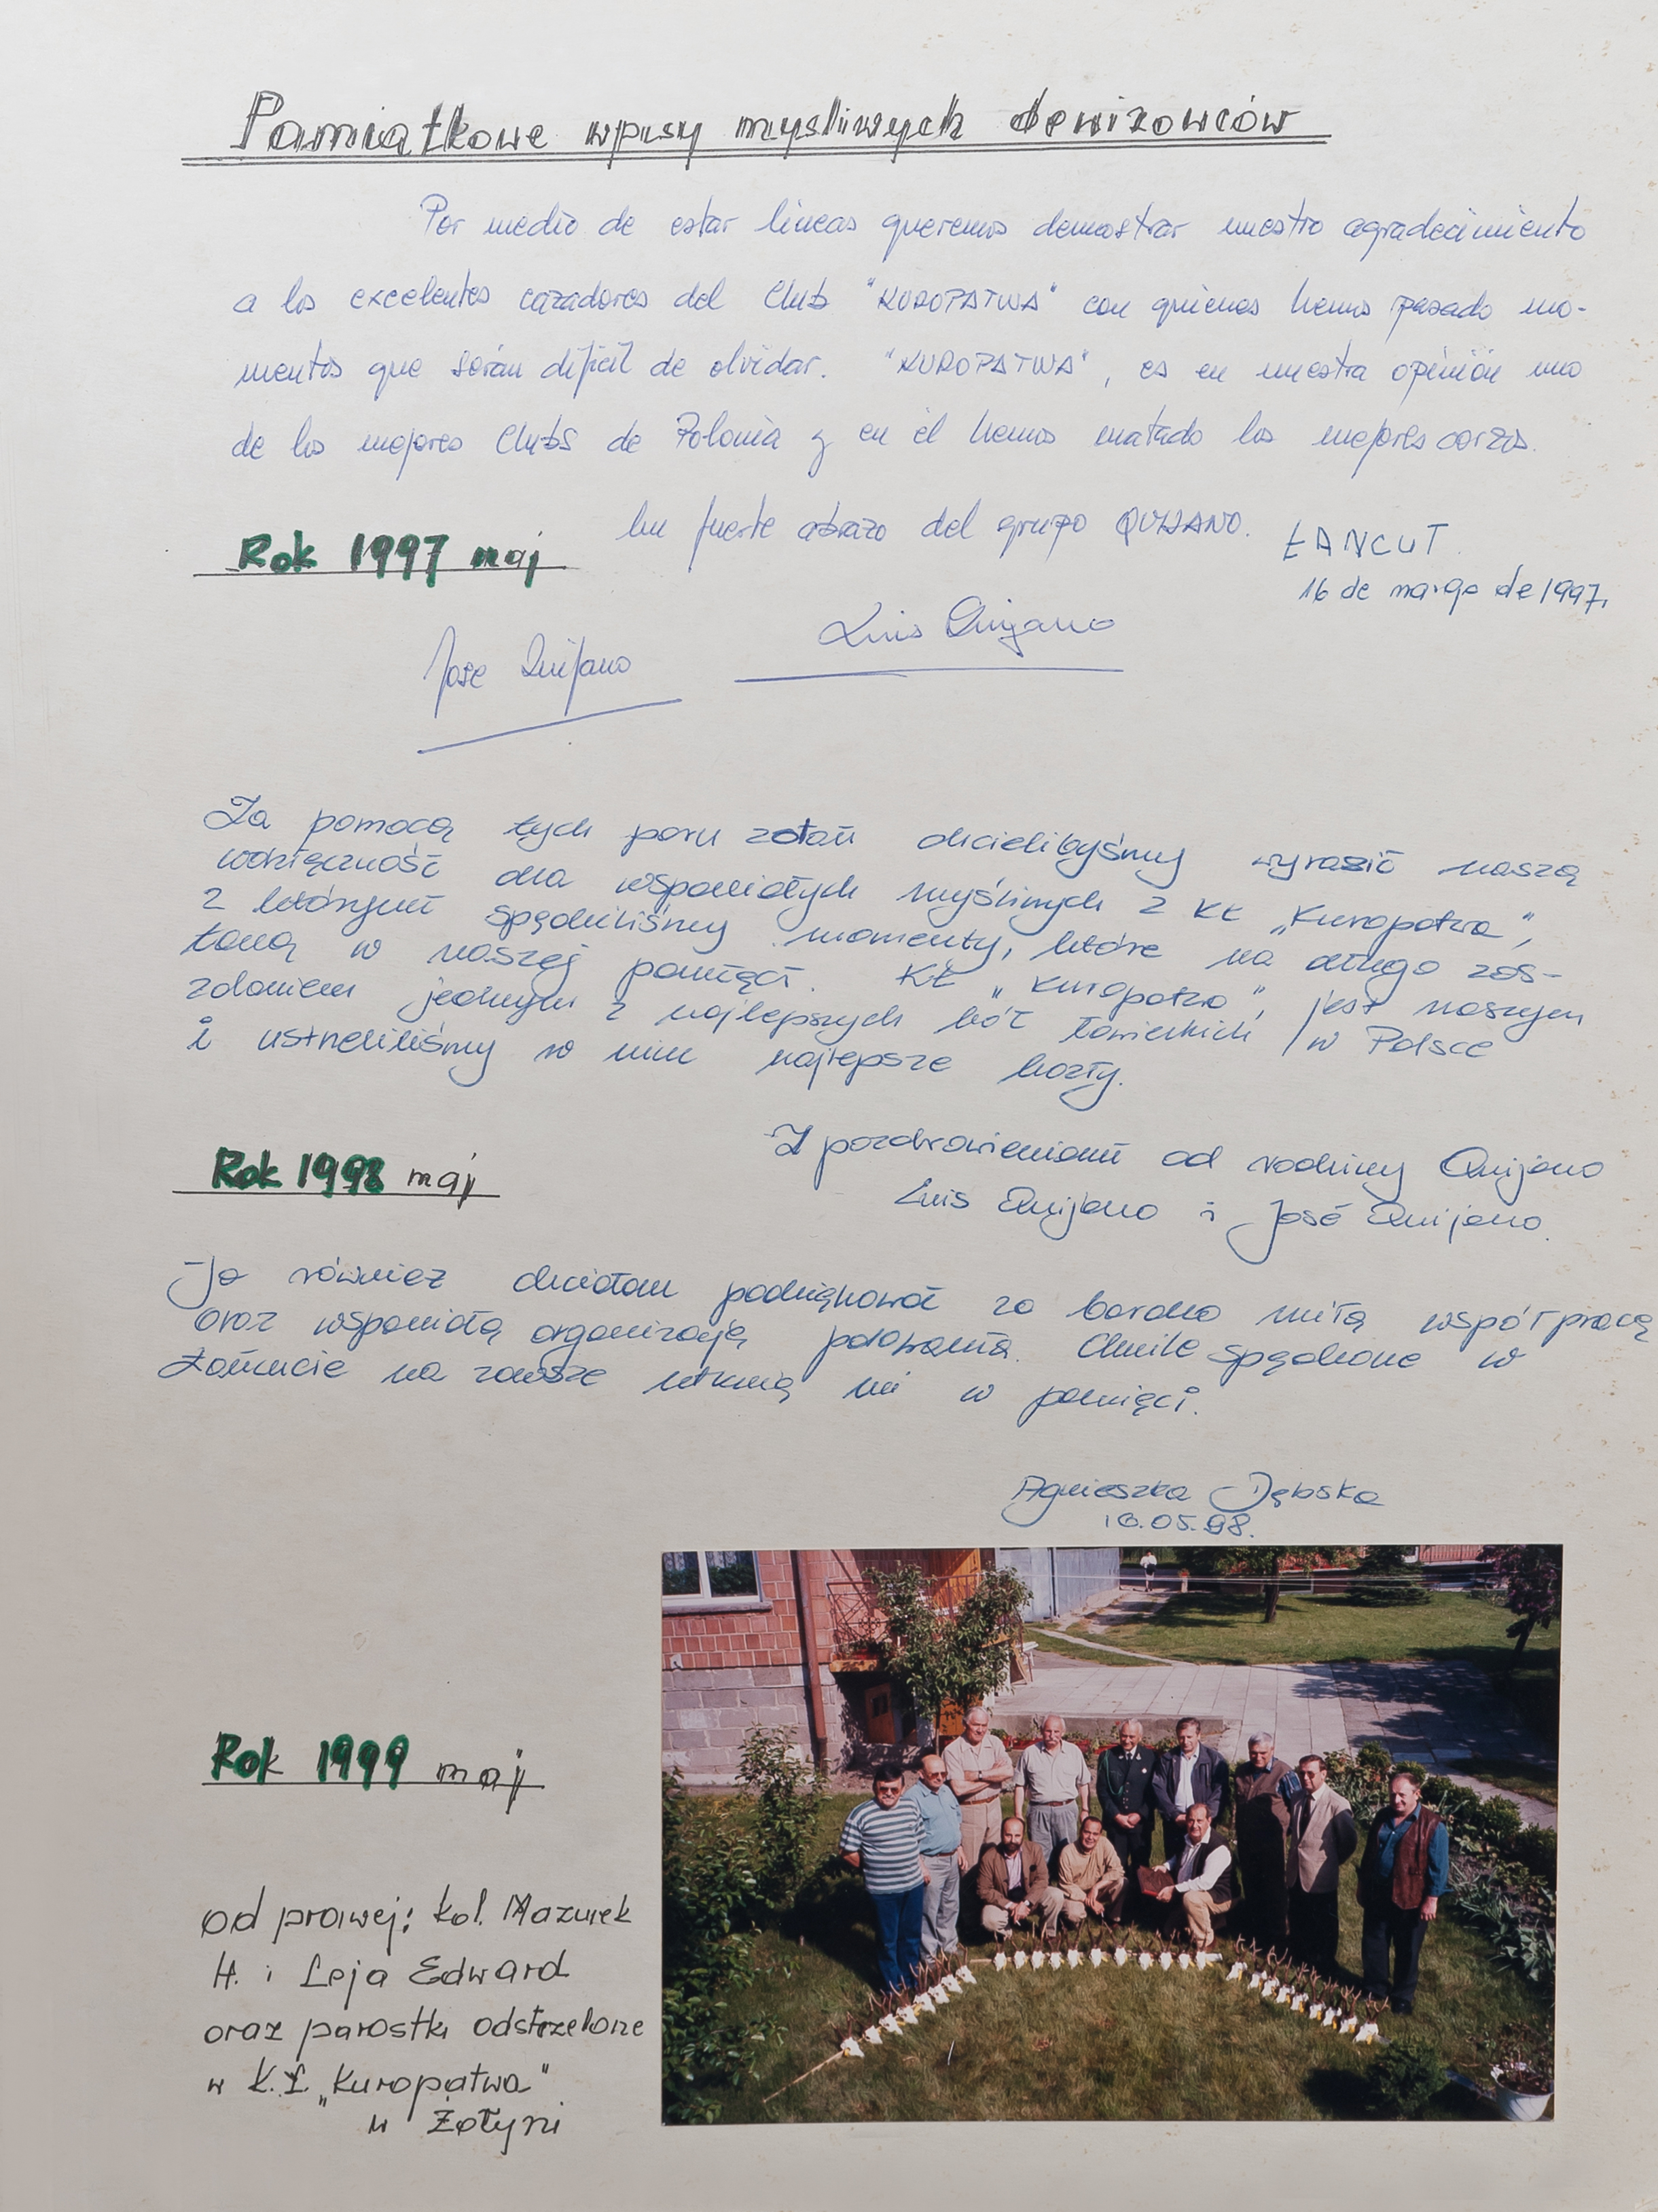 Pamiątkowe wpisy myśliwych dewizowców
Por medio de estar lineas queremos demostrar nuestro agradecimiento
a los excelentes cazadores del Club "KUROPATWA" con quienes hemos pasado mo-
mentos que serán difícil de olvidar. "KUROPATWA", es en nuestra opinión uno
de los mejores Clubs de Polonia y en el hemos matado los mejores corzos.
Un fuerte abrazo del grupo QUIJANO.
ŁANCUT
Rok 1997 maj
16 de mayo de 1997,
Luis Quijano
Jose Quijano
Za pomocą tych paru zdań chcielibyśmy wyrazić naszą
wdzięczność dla wspaniałych myśliwych z KŁ „Kuropatwa",
z którymi spędziliśmy momenty, które na długo zos-
taną w naszej pamięci. KŁ „Kuropatwa", jest naszym
zdaniem jednym z najlepszych kół łowieckich w Polsce
i ustrzeliliśmy w nim najlepsze kozły.
Z pozdrowieniami od rodziny Quijano
Rok 1998 maj
Luis Quijano i José Quijano.
Ja również chciałam podziękować za bardzo miłą współpracę
oraz wspaniałą organizację polowania. Chwile spędzone w
Łańcucie na zawsze utkwią mi w pamięci.
Agnieszka Dębska
16.05.98.
Rok 1999 maj
od prawej: kol. Mazurek
H. i Leja Edward
oraz parostki odstrzelone
w K.Ł. „Kuropatwa"
w Żołyni